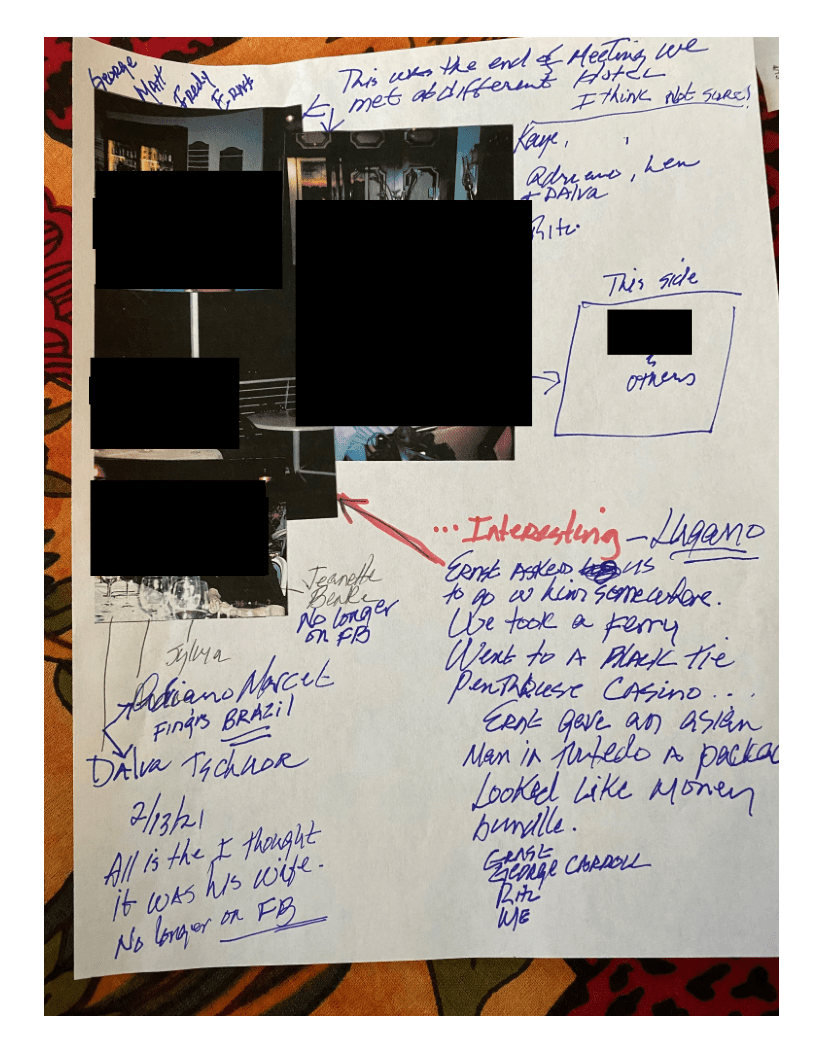 George
Matt
Fredy
Ernst
This was the end of Meeting we
met at different Hotel
I think not sure!
Kaye,
Adriano, Len
+ DAlva
Ritz
This side
&
others
... Interesting - Lugano
Ernst Asked us
to go w him somewhere.
We took a Ferry
Went to A Black Tie
Penthouse Casino...
Ernst gave an asian
Man in tuxedo a packa
Looked Like Money
bundle.
Ernst
George CARROLL
Ritz
ME
Jeanette
No longer
on FB
Sylvya
Adriano Marcet
BRAZIl
DAlva
2/13/21
All is the I thought
it was his wife.
No longer on FB